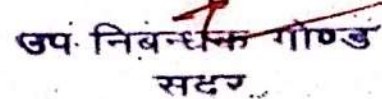 उप निबन्धक गोण्ड
सदर